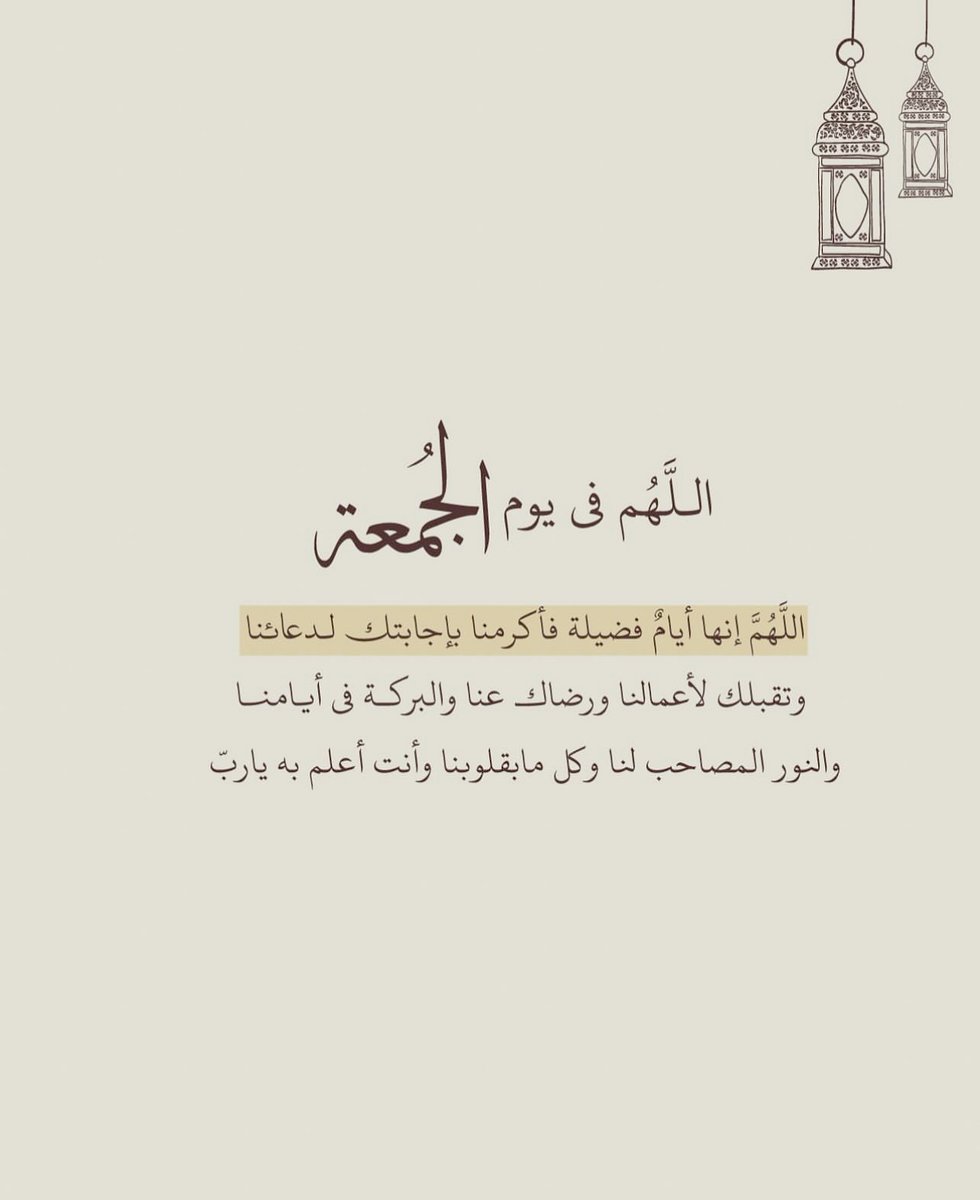 اللَّهُم فى يوم الجُمعة
اللَّهُمَّ إنها أيامٌ فضيلة فأكرمنا بإجابتك لدعائنا
وتقبلك لأعمالنا ورضاك عنا والبركة فى أيامنا
والنور المصاحب لنا وكل مابقلوبنا وأنت أعلم به ياربّ